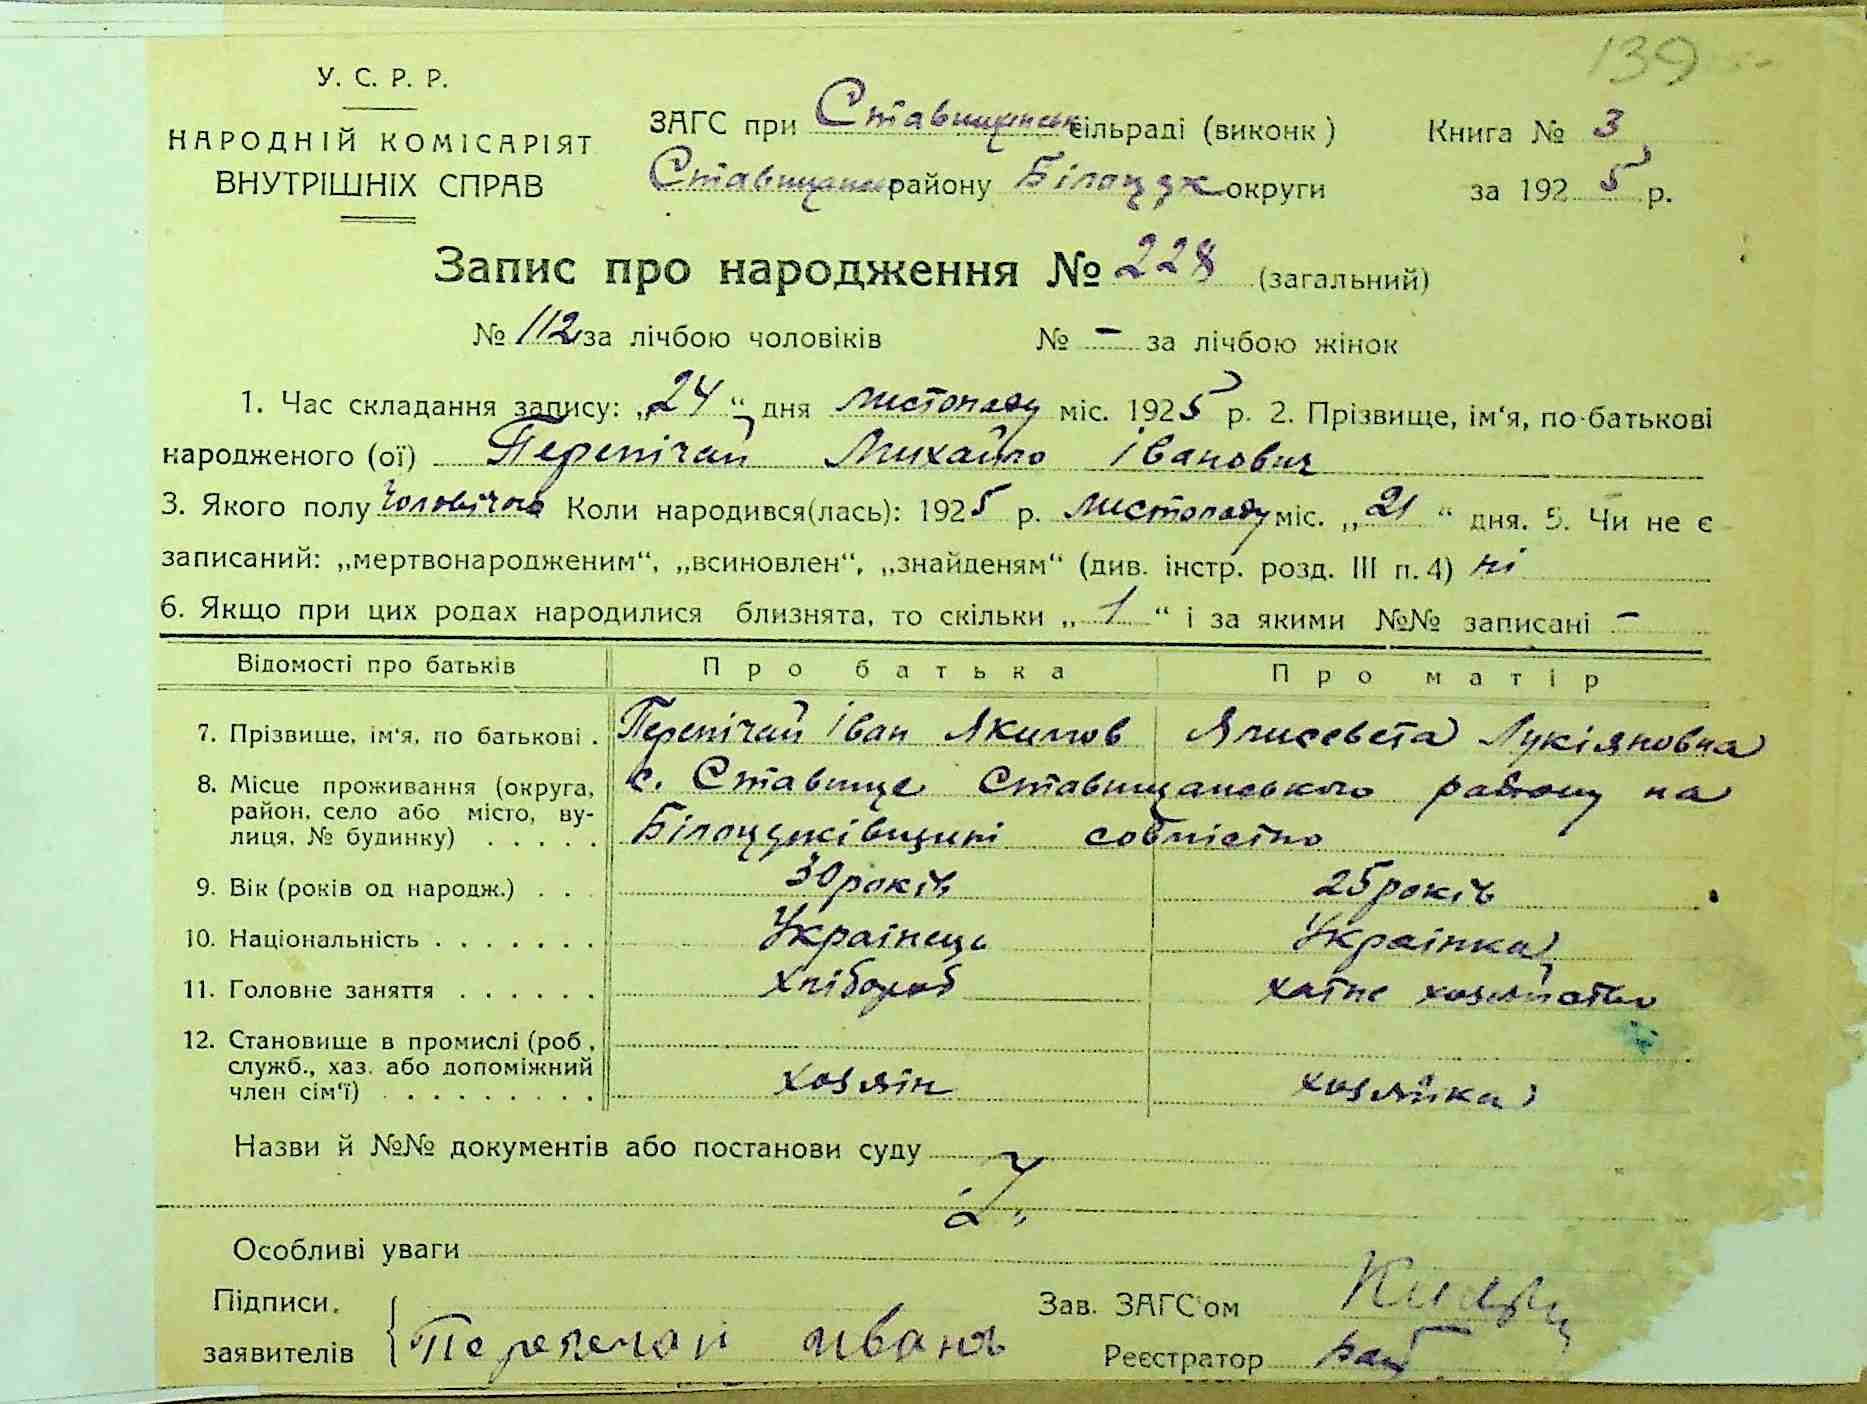 139
У. С. Р. Р.
НАРОДНІЙ КОМІСАРІЯТ
ВНУТРІШНІХ СПРАВ
ЗАГС при Ставищанськ сільраді (виконк)
Книга № 3
Ставищанськ району Білоцерк округи
за 1925 р.
Запис про народження № 228 (загальний)
№ 112 за лічбою чоловіків № – за лічбою жінок
1. Час складання запису: „24“ дня листопаду міс. 1925 р. 2. Прізвище, ім‘я, по-батькові
народженого (ої) Перепічай Михайло Іванович
3. Якого полу чоловічого Коли народився(лась): 1925 р. листопаду міс. „21“ дня. 5. Чи не є
записаний: „мертвонародженим“, „всиновлен“, „знайденям“ (див. інстр. розд. III п. 4) ні
6. Якщо при цих родах народилися близнята, то скільки „1“ і за якими №№ записані –
Відомості про батьків Про батька Про матір
7. Прізвище, ім‘я, по батькові . Перепічай Іван Якимов Ялисевета Лукіяновна
8. Місце проживання (округа, с. Ставище Ставищанського району на
район, село або місто, ву-
лиця, № будинку) . . . . . Білоцерківщині совмістно
9. Вік (років од народж.) . . 30 років 25 років
10. Національність . . . . . . . Українець Українка
11. Головне заняття . . . . . . Хлібороб хатнє хозяйство
12. Становище в промислі (роб.,
служб., хаз. або допоміжний
член сім‘ї) . . . . . . . . . хозяїн хозяйка
Назви й №№ документів або постанови суду
Особливі уваги
Підписи
заявителів Перепечай Иванъ
Зав. ЗАГС‘ом
Реєстратор